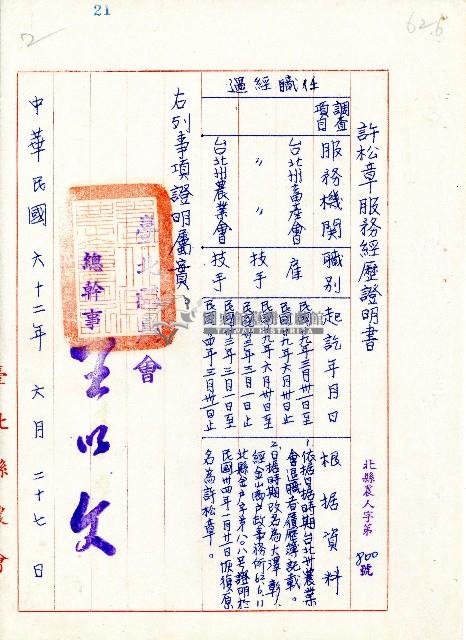 21
2
62.6
許松章服務經歷證明書
北縣農人字第
800號
任職經過
調查項目
服務機關
職別
起訖年月日
根据資料
台北州畜產會
雇
民國十九年三月卅一日至
民國十九年六月卅日止
〃 〃
技手
民國十九年六月卅日至
民國卅三年三月一日止
台北州農業會
技手
民國卅三年三月一日至
民國卅四年三月卅一日止
1.依据日據時期台北州農業
會退職者履歷簿記載。
2.日據時期改名為大澤彰
經金山鄉戶政事務所62.6.11
北縣金戶字第八〇八號證明於
民國卅四年一月廿日恢復原
名為許松章。
右列事項證明屬實
總幹事
王以文
會
中華民國 六十二年 六月 二十七日
臺北縣農會